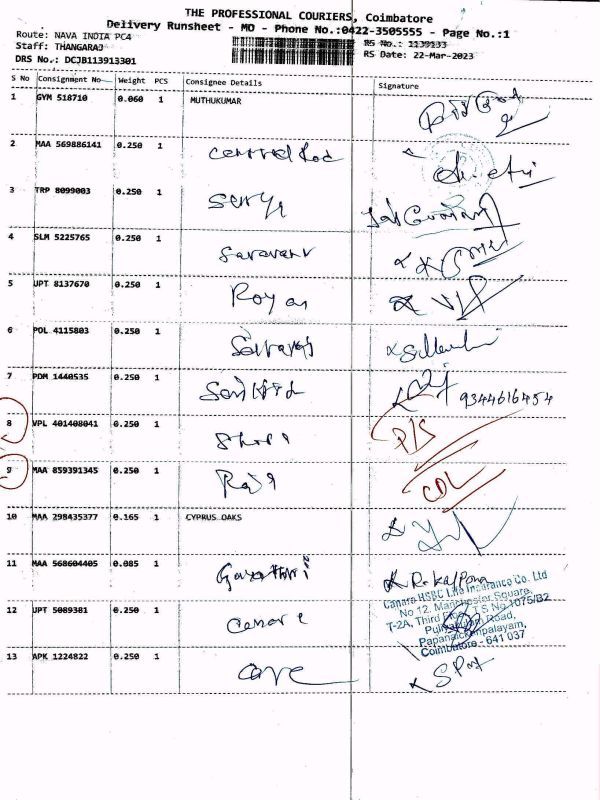 THE PROFESSIONAL COURIERS, Coimbatore
Delivery Runsheet - MO - Phone No.:0422-3505555 - Page No.:1
Route: NAVA INDIA PC4
RS No.: 1139133
Staff: THANGARAJ
RS Date: 22-Mar-2023
DRS No.: DCJB113913301
S No Consignment No Weight PCS Consignee Details Signature
1 GYM 518710 0.060 1 MUTHUKUMAR
2 MAA 569886141 0.250 1
3 TRP 8099003 0.250 1
4 SLM 5225765 0.250 1
5 UPT 8137670 0.250 1 Royan
6 POL 4115803 0.250 1
7 PDM 1440535 0.250 1 9344616454
8 VPL 401408041 0.250 1 P/S
9 MAA 859391345 0.250 1 CDL
10 MAA 298435377 0.165 1 CYPRUS OAKS
11 MAA 568604405 0.085 1 Gayathri R. Kalpana
Canara HSBC Life Insurance Co. Ltd
No 12, Manchester Square,
12 UPT 5089381 0.250 1
T-2A, Third Floor, T S No 1075/B2
Puliyakulam Road,
Papanaickenpalayam,
Coimbatore - 641 037
13 APK 1224822 0.250 1